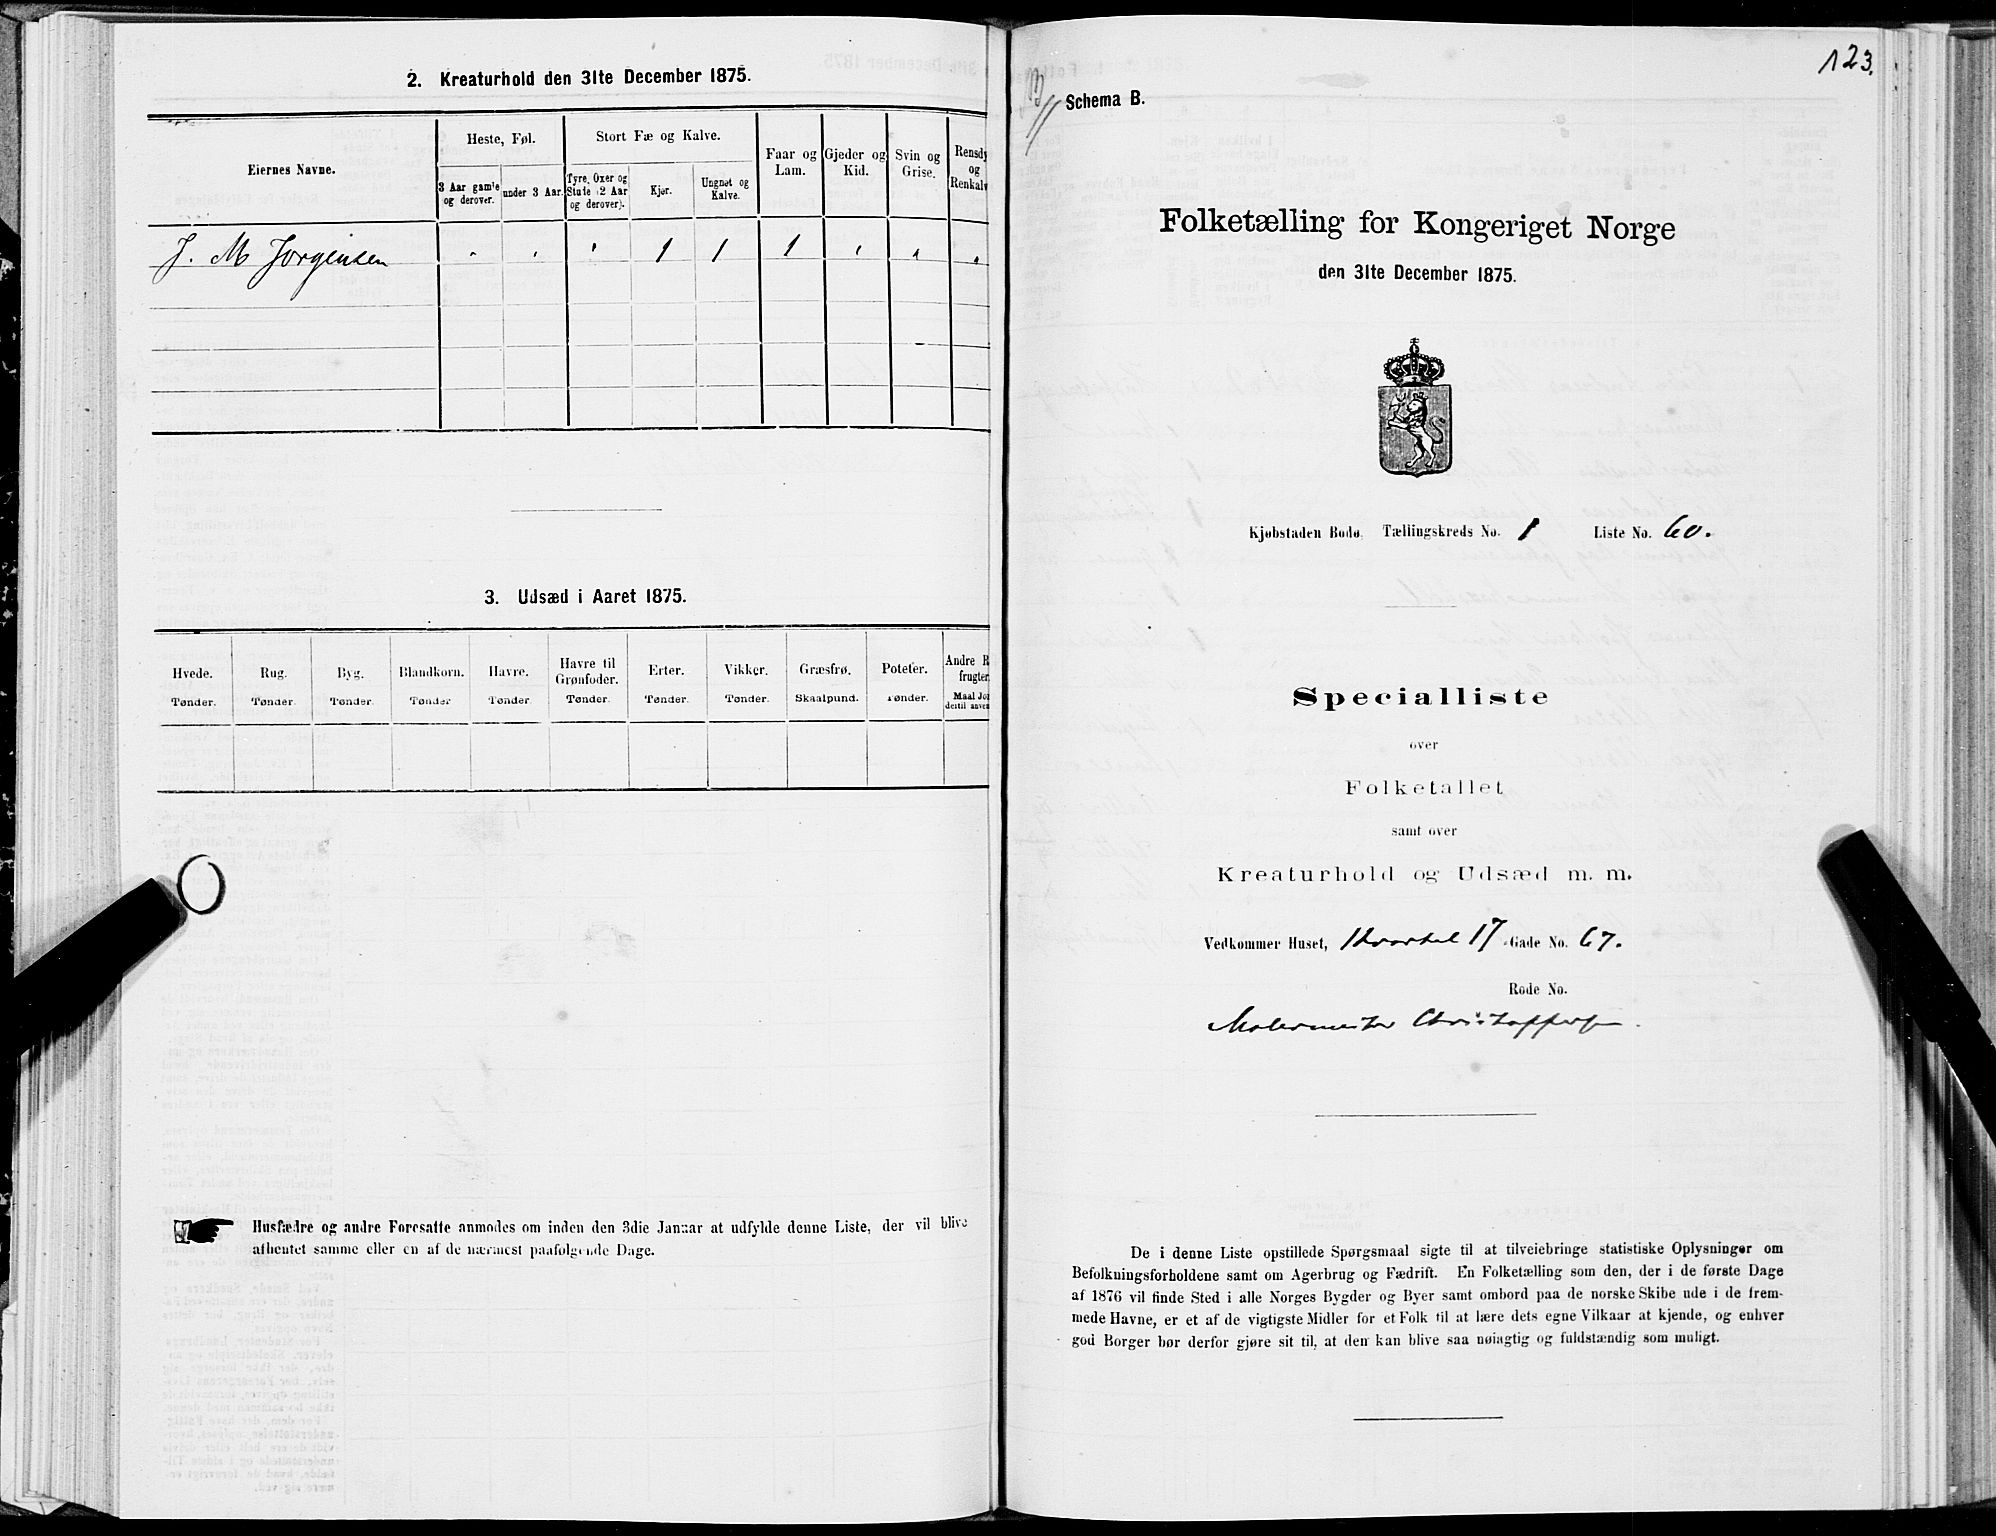 2. Kreaturhold den 31te December 1875.
Eiernes Navne.
Heste, Føl.
Stort Fæ og Kalve.
Faar og Lam.
Gjeder og Kid.
Svin og Grise.
Rensdy
og
Renkalv
3 Aar gamle og derover.
under 3 Aar.
Tyre, Oxer og Stude (2 Aar og derover).
Kjør.
Ungnøt og Kalve.
J. M Jørgensen " " " 1 1 1 " " "
3. Udsæd i Aaret 1875.
Hvede. Rug. Byg. Blandkorn. Havre. Havre til Grønfoder. Erter. Vikker. Græsfrø. Poteter. Andre R
frugter
Tønder. Tønder. Tønder. Tønder Tønder Tønder. Tønder. Tønder. Skaalpund. Tønder. Maal Jor
dertil anven
Husfædre og andre Foresatte anmodes om inden den 3die Januar at udfylde denne Liste, der vil blive
afhentet samme eller en af de nærmest paafølgende Dage.
123.
Schema B.
Folketælling for Kongeriget Norge
den 31te December 1875.
Kjøbstaden Bodø. Tællingskreds No. 1 Liste No. 60.
Specialliste
over
Folketallet
samt over
Kreaturhold og Udsæd m. m.
Vedkommer Huset, Kvartal 17 Gade No. 67.
Rode No.
Malermester Christoffersen.
De i denne Liste opstillede Spørgsmaal sigte til at tilveiebringe statistiske Oplysninger om
Befolkningsforholdene samt om Agerbrug og Fædrift. En Folketælling som den, der i de første Dage
af 1876 vil finde Sted i alle Norges Bygder og Byer samt ombord paa de norske Skibe ude i de frem-
mede Havne, er et af de vigtigste Midler for et Folk til at lære dets egne Vilkaar at kjende, og enhver
god Borger bør derfor gjøre sit til, at den kan blive saa nøiagtig og fuldstændig som muligt.